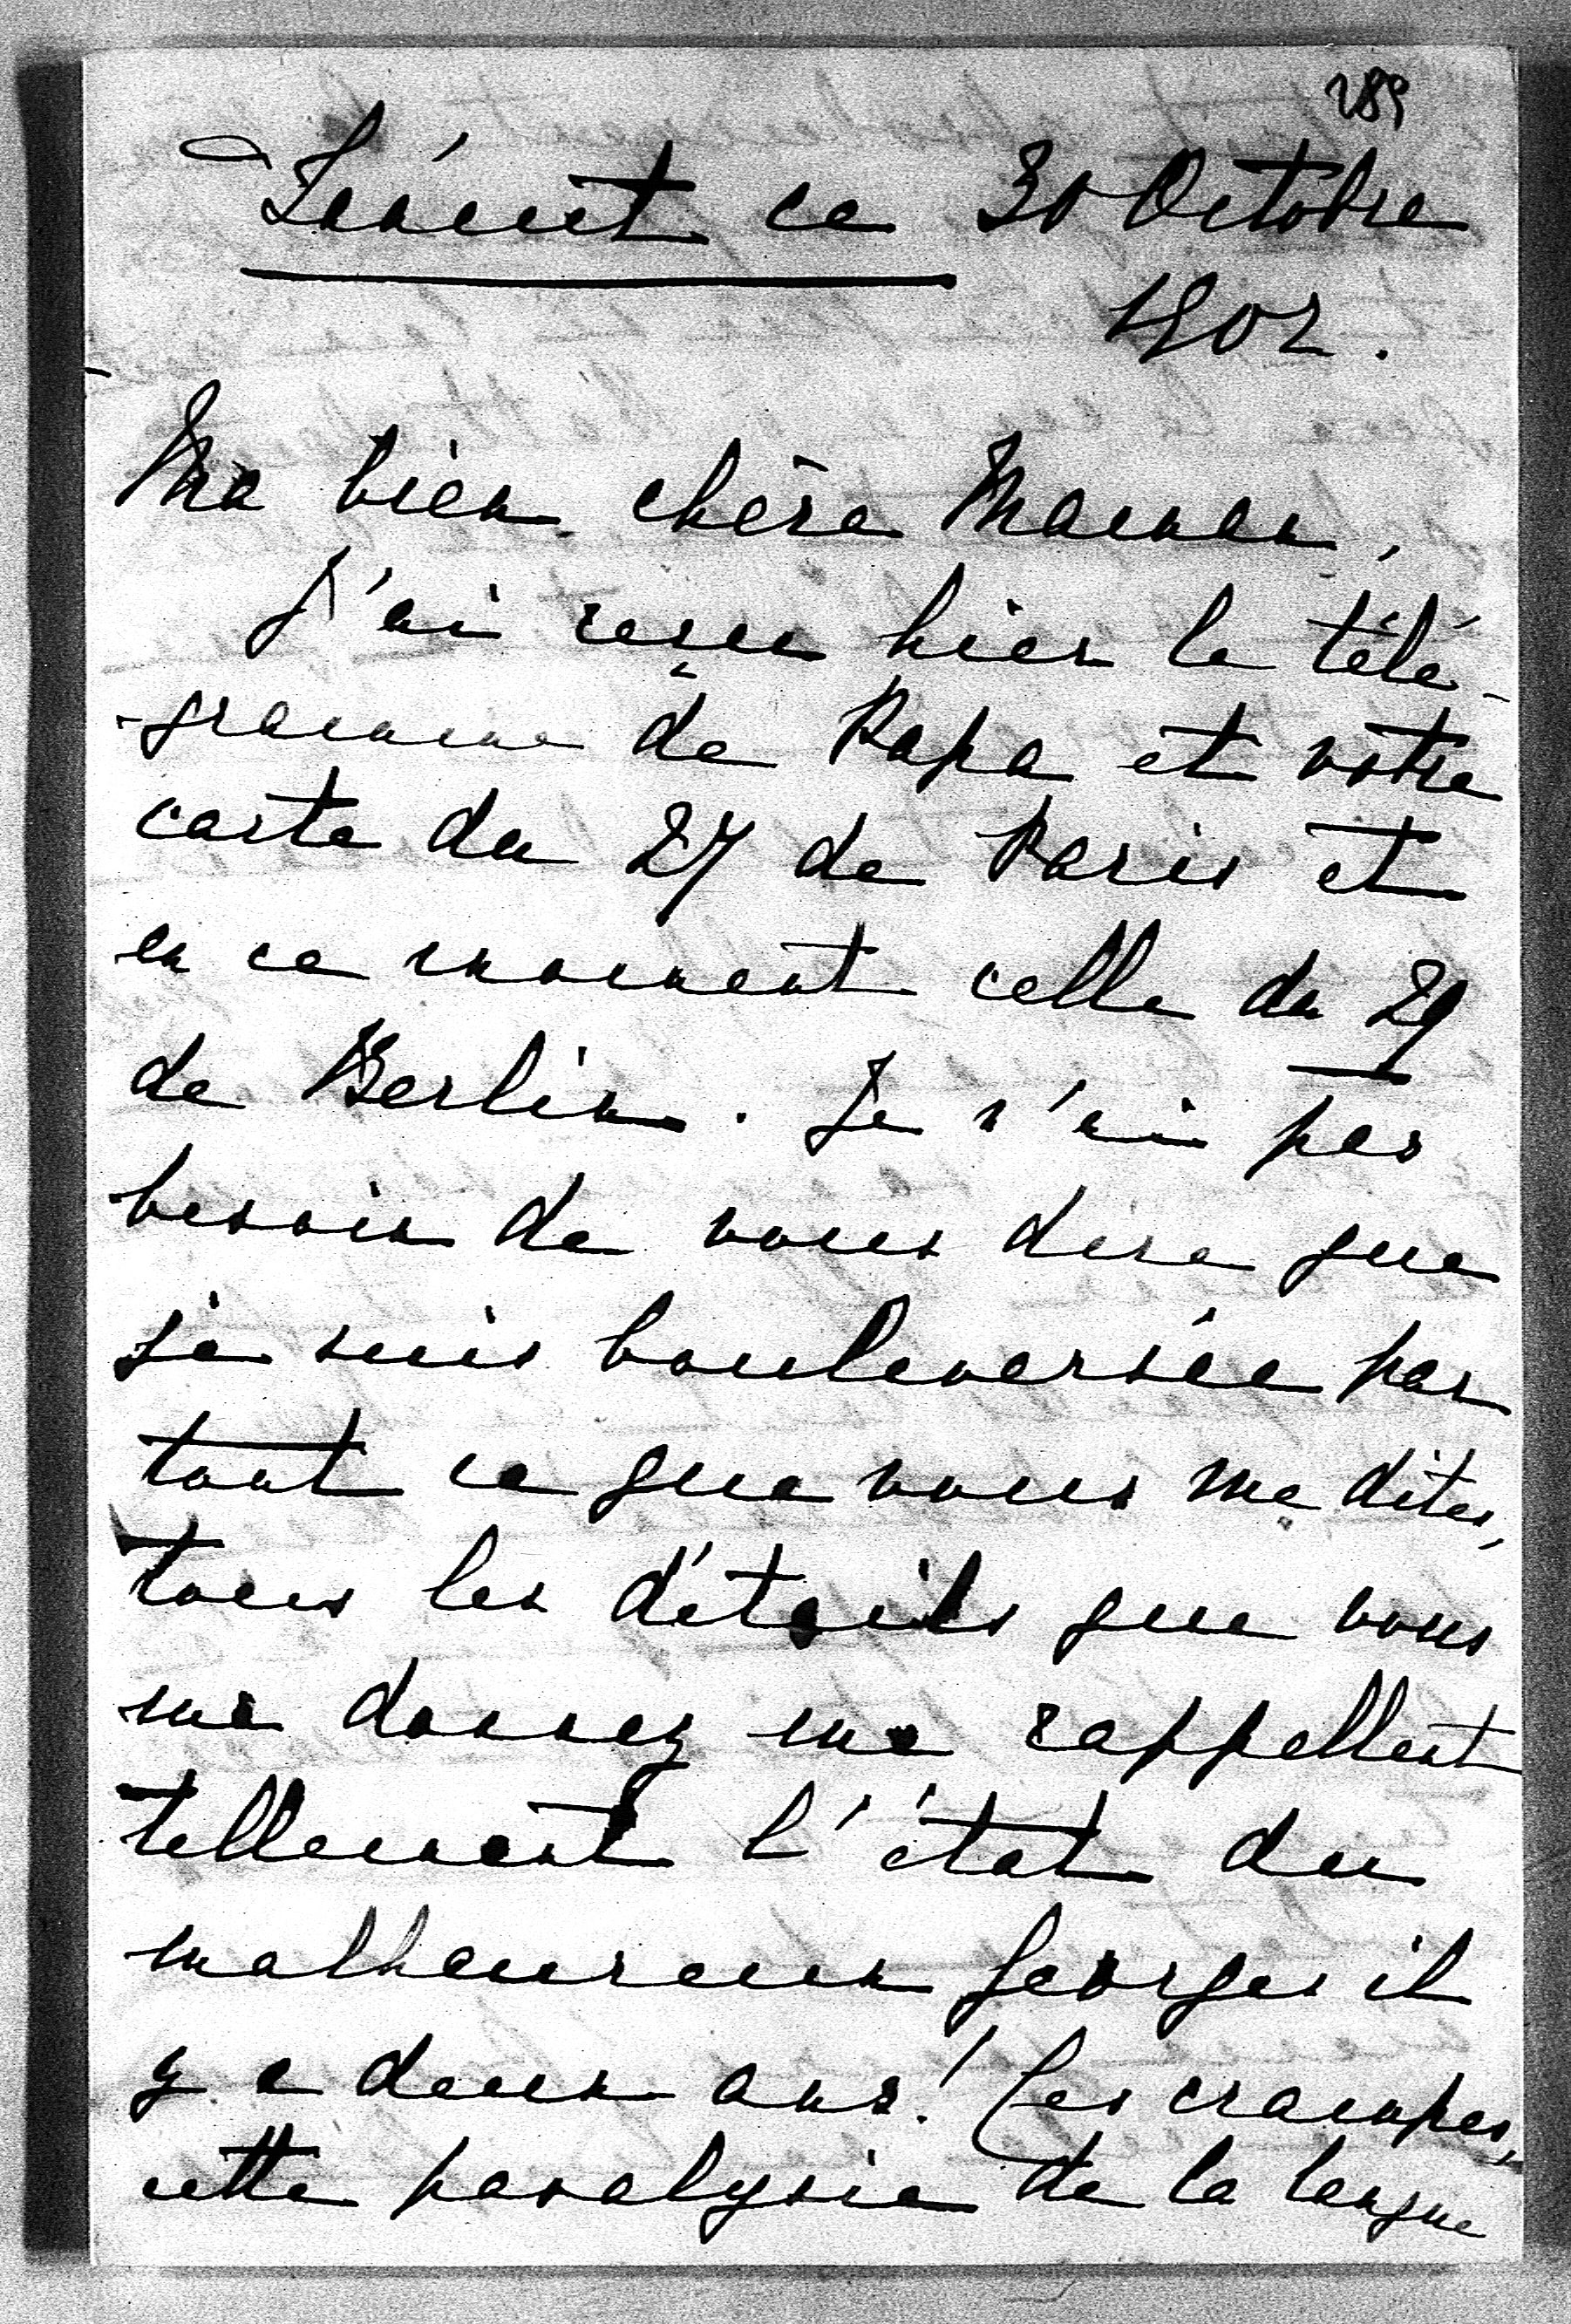 289
ce 30 Octobre
1902.
Ma bien chère Maman,
J'ai reçu hier le télé-
-gramme de Papa et votre
carte du 27 de Paris et
en ce moment celle du 29
de Berlin. Je n'ai pas
besoin de vous dire que
je suis bouleversée par
tout ce que vous me dites,
tous les détails que vous
me donnez me rappellent
tellement l'état du
malheureux Georges il
y a deux ans! Ces crampes,
cette paralysie de la langue